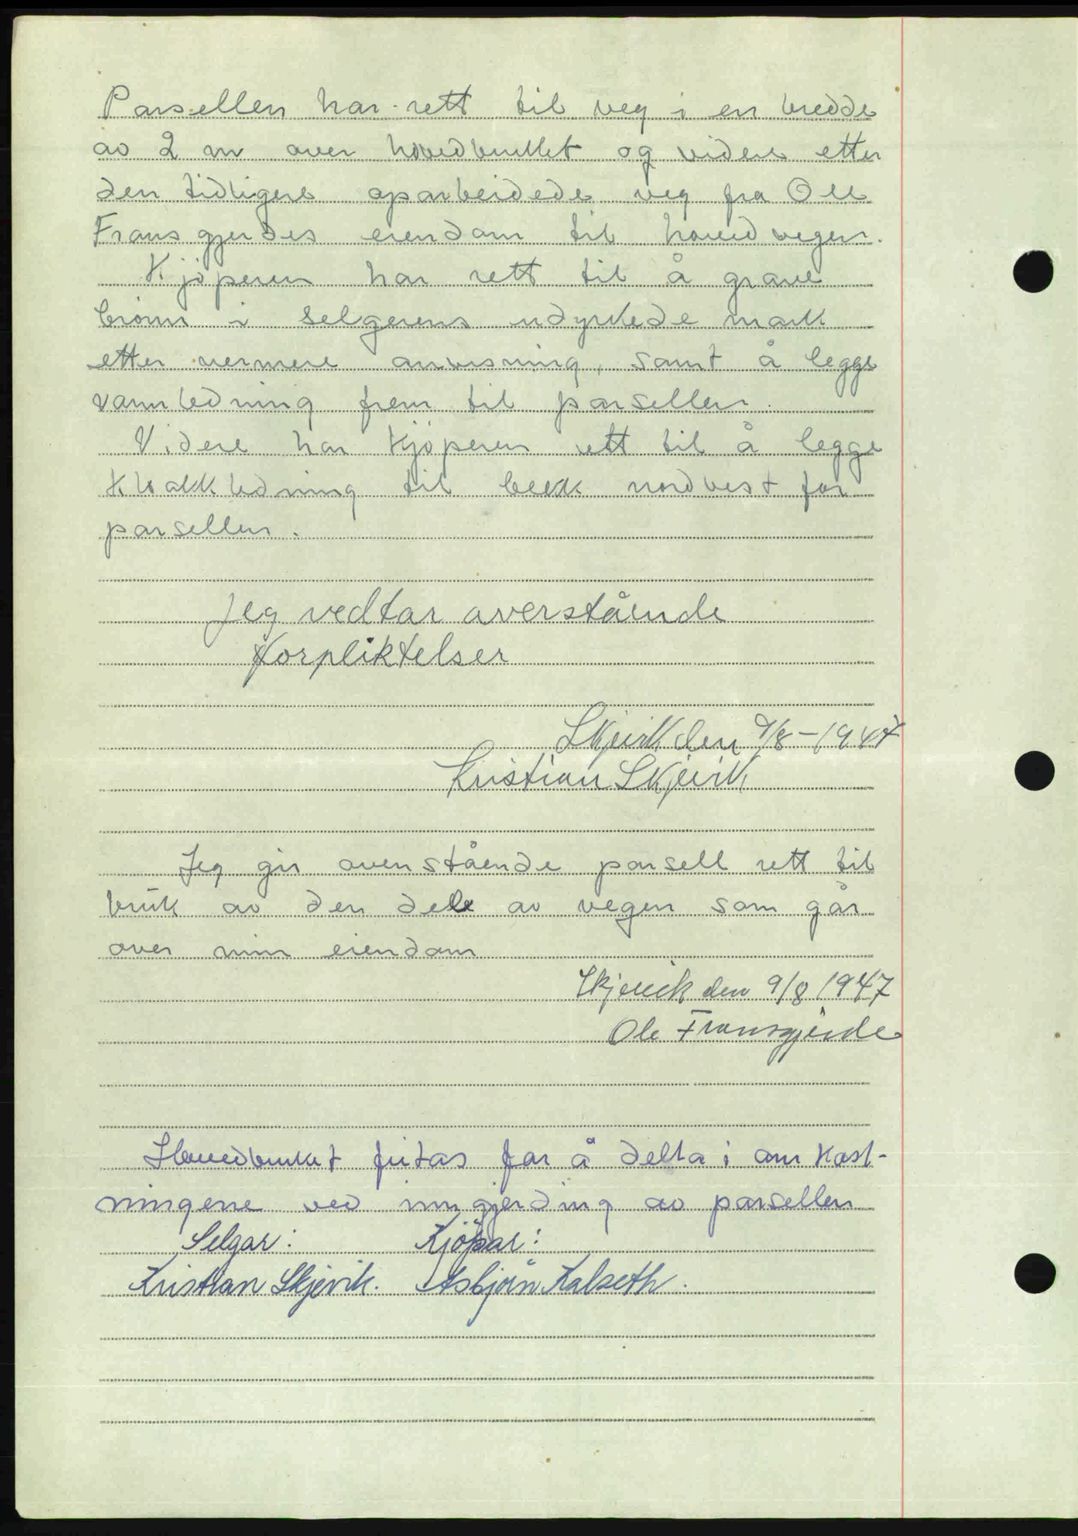 Parsellen har rett til veg i en bredde
av 2 m over hovedbruket og videre etter
den tidligere oparbeidede veg fra Ole
Fransgjerdes eiendom til hovedvegen.
Kjöperen har rett til å grave
brönn i selgerens udyrkede mark
etter nermere anvisning, samt å legge
vannledning frem til parsellen.
Videre har kjöperen rett til å legge
kloakkledning til bekk nordvest for
parsellen.
Jeg vedtar overstående
forpliktelser
Skjevik den 9/8-1947
Kristian Skjevik
Jeg gir ovenstående parsell rett til
bruk av den dele av vegen som går
over min eiendom
Skjevik den 9/8 1947
Ole Fransgjerde
Hovedbruket fritas for å delta i omkost-
ningene ved inngjerding av parsellen
Selgar: Kjöpar:
Kristian Skjevik. Asbjörn Kalseth.